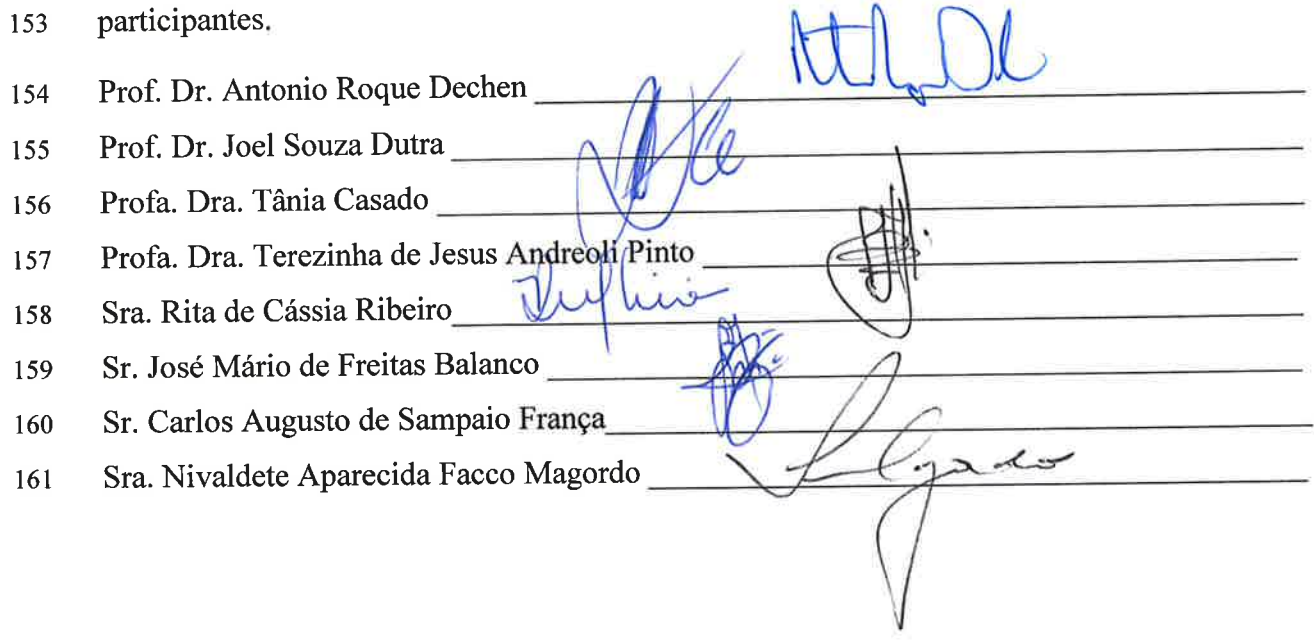 153 participantes.
154 Prof. Dr. Antonio Roque Dechen
155 Prof. Dr. Joel Souza Dutra
156 Profa. Dra. Tânia Casado
157 Profa. Dra. Terezinha de Jesus Andreoli Pinto
158 Sra. Rita de Cássia Ribeiro
159 Sr. José Mário de Freitas Balanco
160 Sr. Carlos Augusto de Sampaio França
161 Sra. Nivaldete Aparecida Facco Magordo